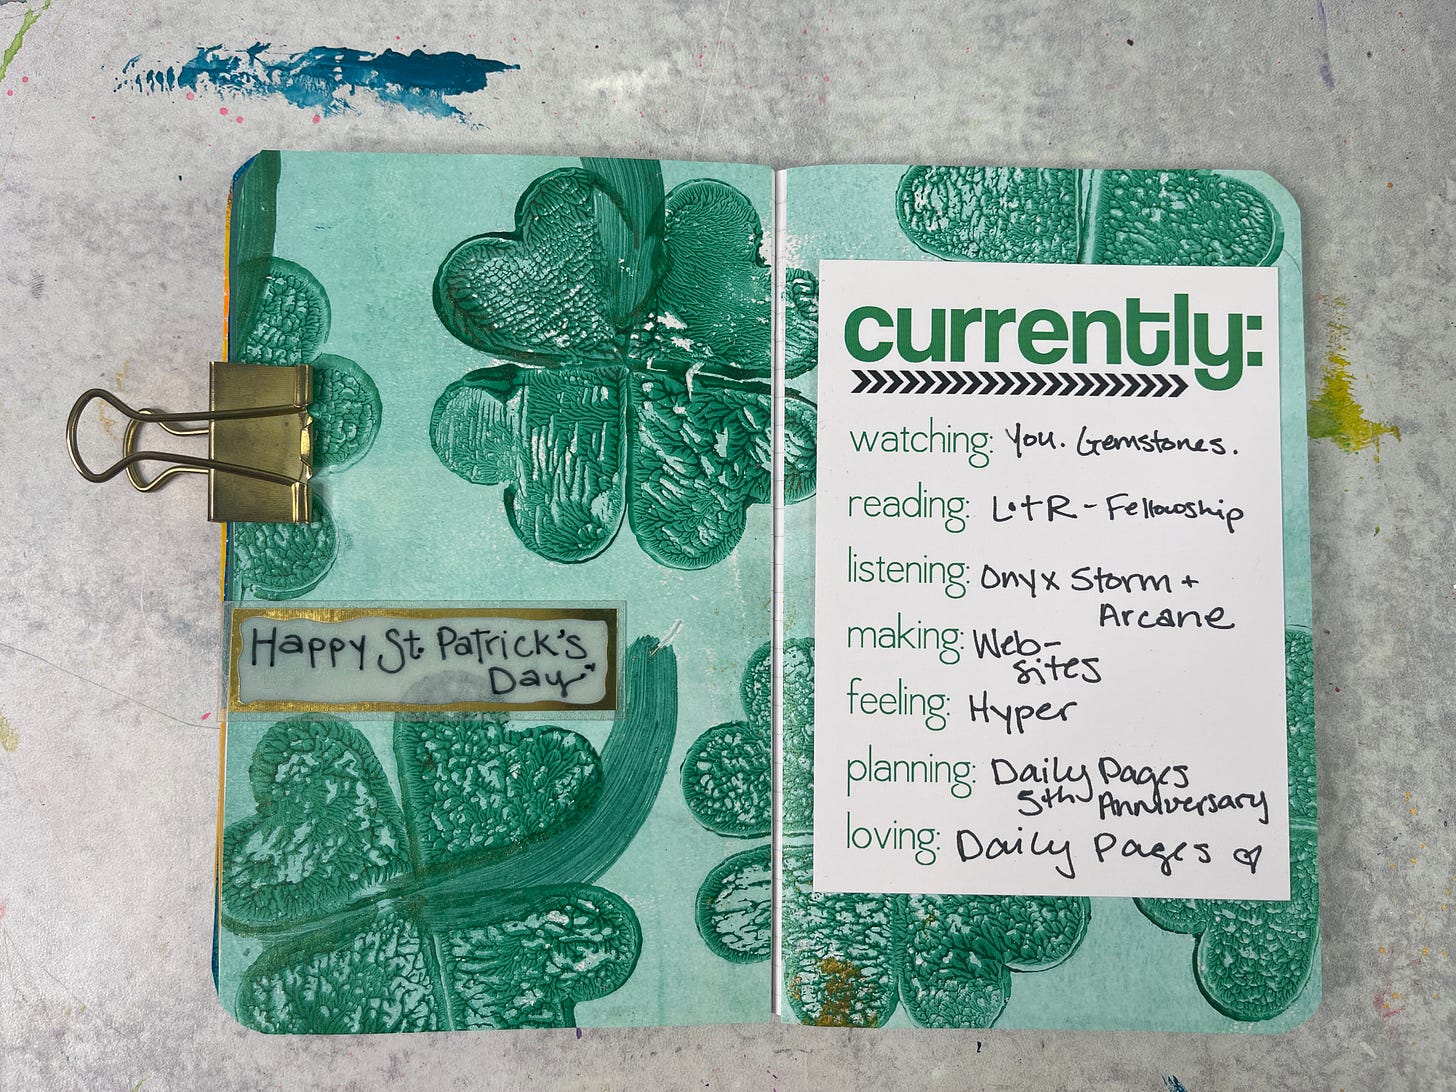 Happy St. Patrick's
Day
currently:
watching: You. Gemstones.
reading: LotR - Fellowship
listening: Onyx Storm +
Arcane
making: Web-
sites
feeling: Hyper
planning: Daily Pages
5th Anniversary
loving: Daily Pages